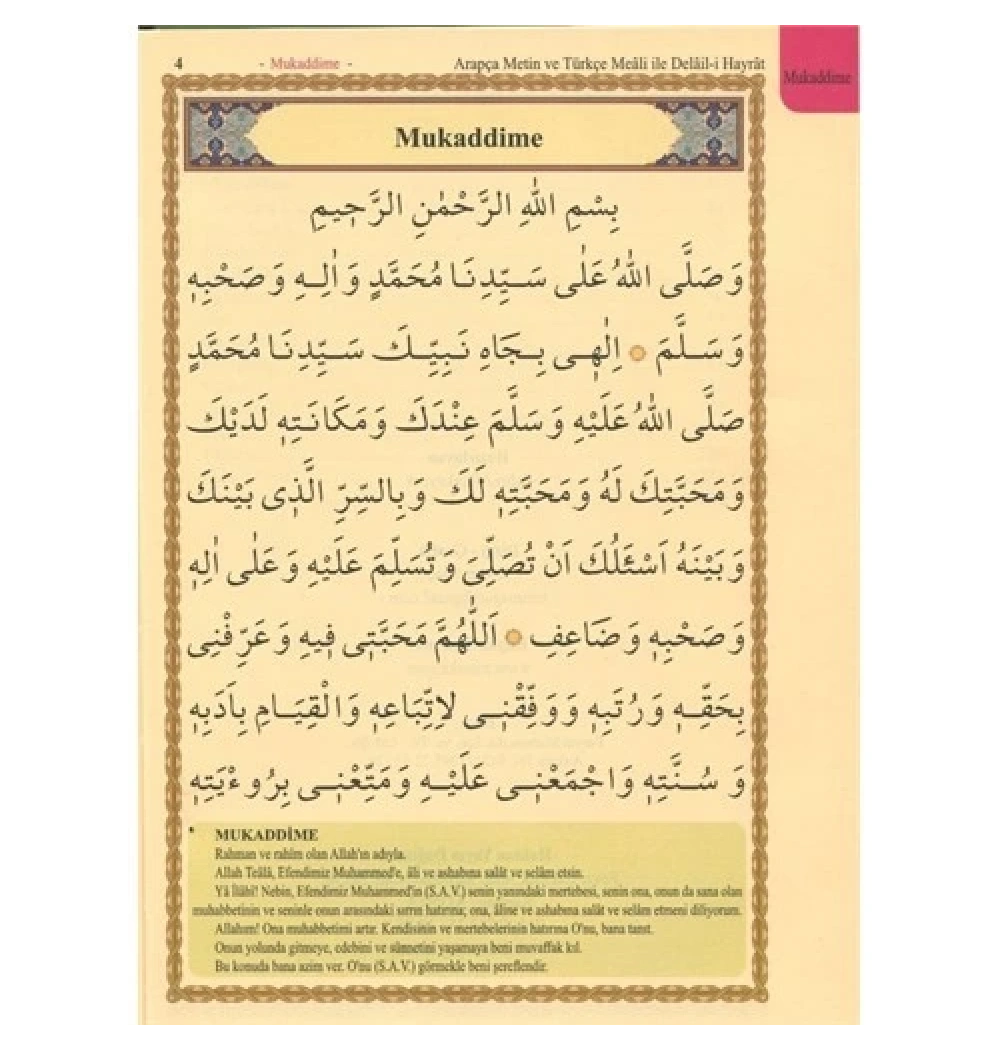 4
- Mukaddime -
Arapça Metin ve Türkçe Meâli ile Delâil-i Hayrât
Mukaddime
Mukaddime
بِسْمِ اللهِ الرَّحْمٰنِ الرَّحٖيمِ
وَ صَلَّى اللهُ عَلٰى سَيِّدِنَا مُحَمَّدٍ وَ اٰلِهِ وَ صَحْبِهٖ
وَ سَلَّمَ ۞ اِلٰهٖى بِجَاهِ نَبِيِّكَ سَيِّدِنَا مُحَمَّدٍ
صَلَّى اللهُ عَلَيْهِ وَ سَلَّمَ عِنْدَكَ وَ مَكَانَتِهٖ لَدَيْكَ
وَ مَحَبَّتِكَ لَهُ وَ مَحَبَّتِهٖ لَكَ وَ بِالسِّرِّ الَّذٖى بَيْنَكَ
وَ بَيْنَهُ اَسْئَلُكَ اَنْ تُصَلِّىَ وَ تُسَلِّمَ عَلَيْهِ وَ عَلٰى اٰلِهٖ
وَ صَحْبِهٖ وَ ضَاعِفِ ۞ اَللّٰهُمَّ مَحَبَّتٖى فِيهِ وَ عَرِّفْنِى
بِحَقِّهٖ وَ رُتَبِهٖ وَ وَفِّقْنٖى لِاتِّبَاعِهٖ وَ الْقِيَامِ بِاَدَبِهٖ
وَ سُنَّتِهٖ وَ اجْمَعْنٖى عَلَيْهِ وَ مَتِّعْنٖى بِرُوءْيَتِهٖ
MUKADDİME
Rahman ve rahîm olan Allah'ın adıyla.
Allah Teâlâ, Efendimiz Muhammed'e, âli ve ashabına salât ve selâm etsin.
Yâ İlâhî! Nebin, Efendimiz Muhammed'in (S.A.V.) senin yanındaki mertebesi, senin ona, onun da sana olan
muhabbetinin ve seninle onun arasındaki sırrın hatırına; ona, âline ve ashabına salât ve selâm etmeni diliyorum.
Allahım! Ona muhabbetimi artır. Kendisinin ve mertebelerinin hatırına O'nu, bana tanıt.
Onun yolunda gitmeye, edebini ve sünnetini yaşamaya beni muvaffak kıl.
Bu konuda bana azim ver. O'nu (S.A.V.) görmekle beni şereflendir.